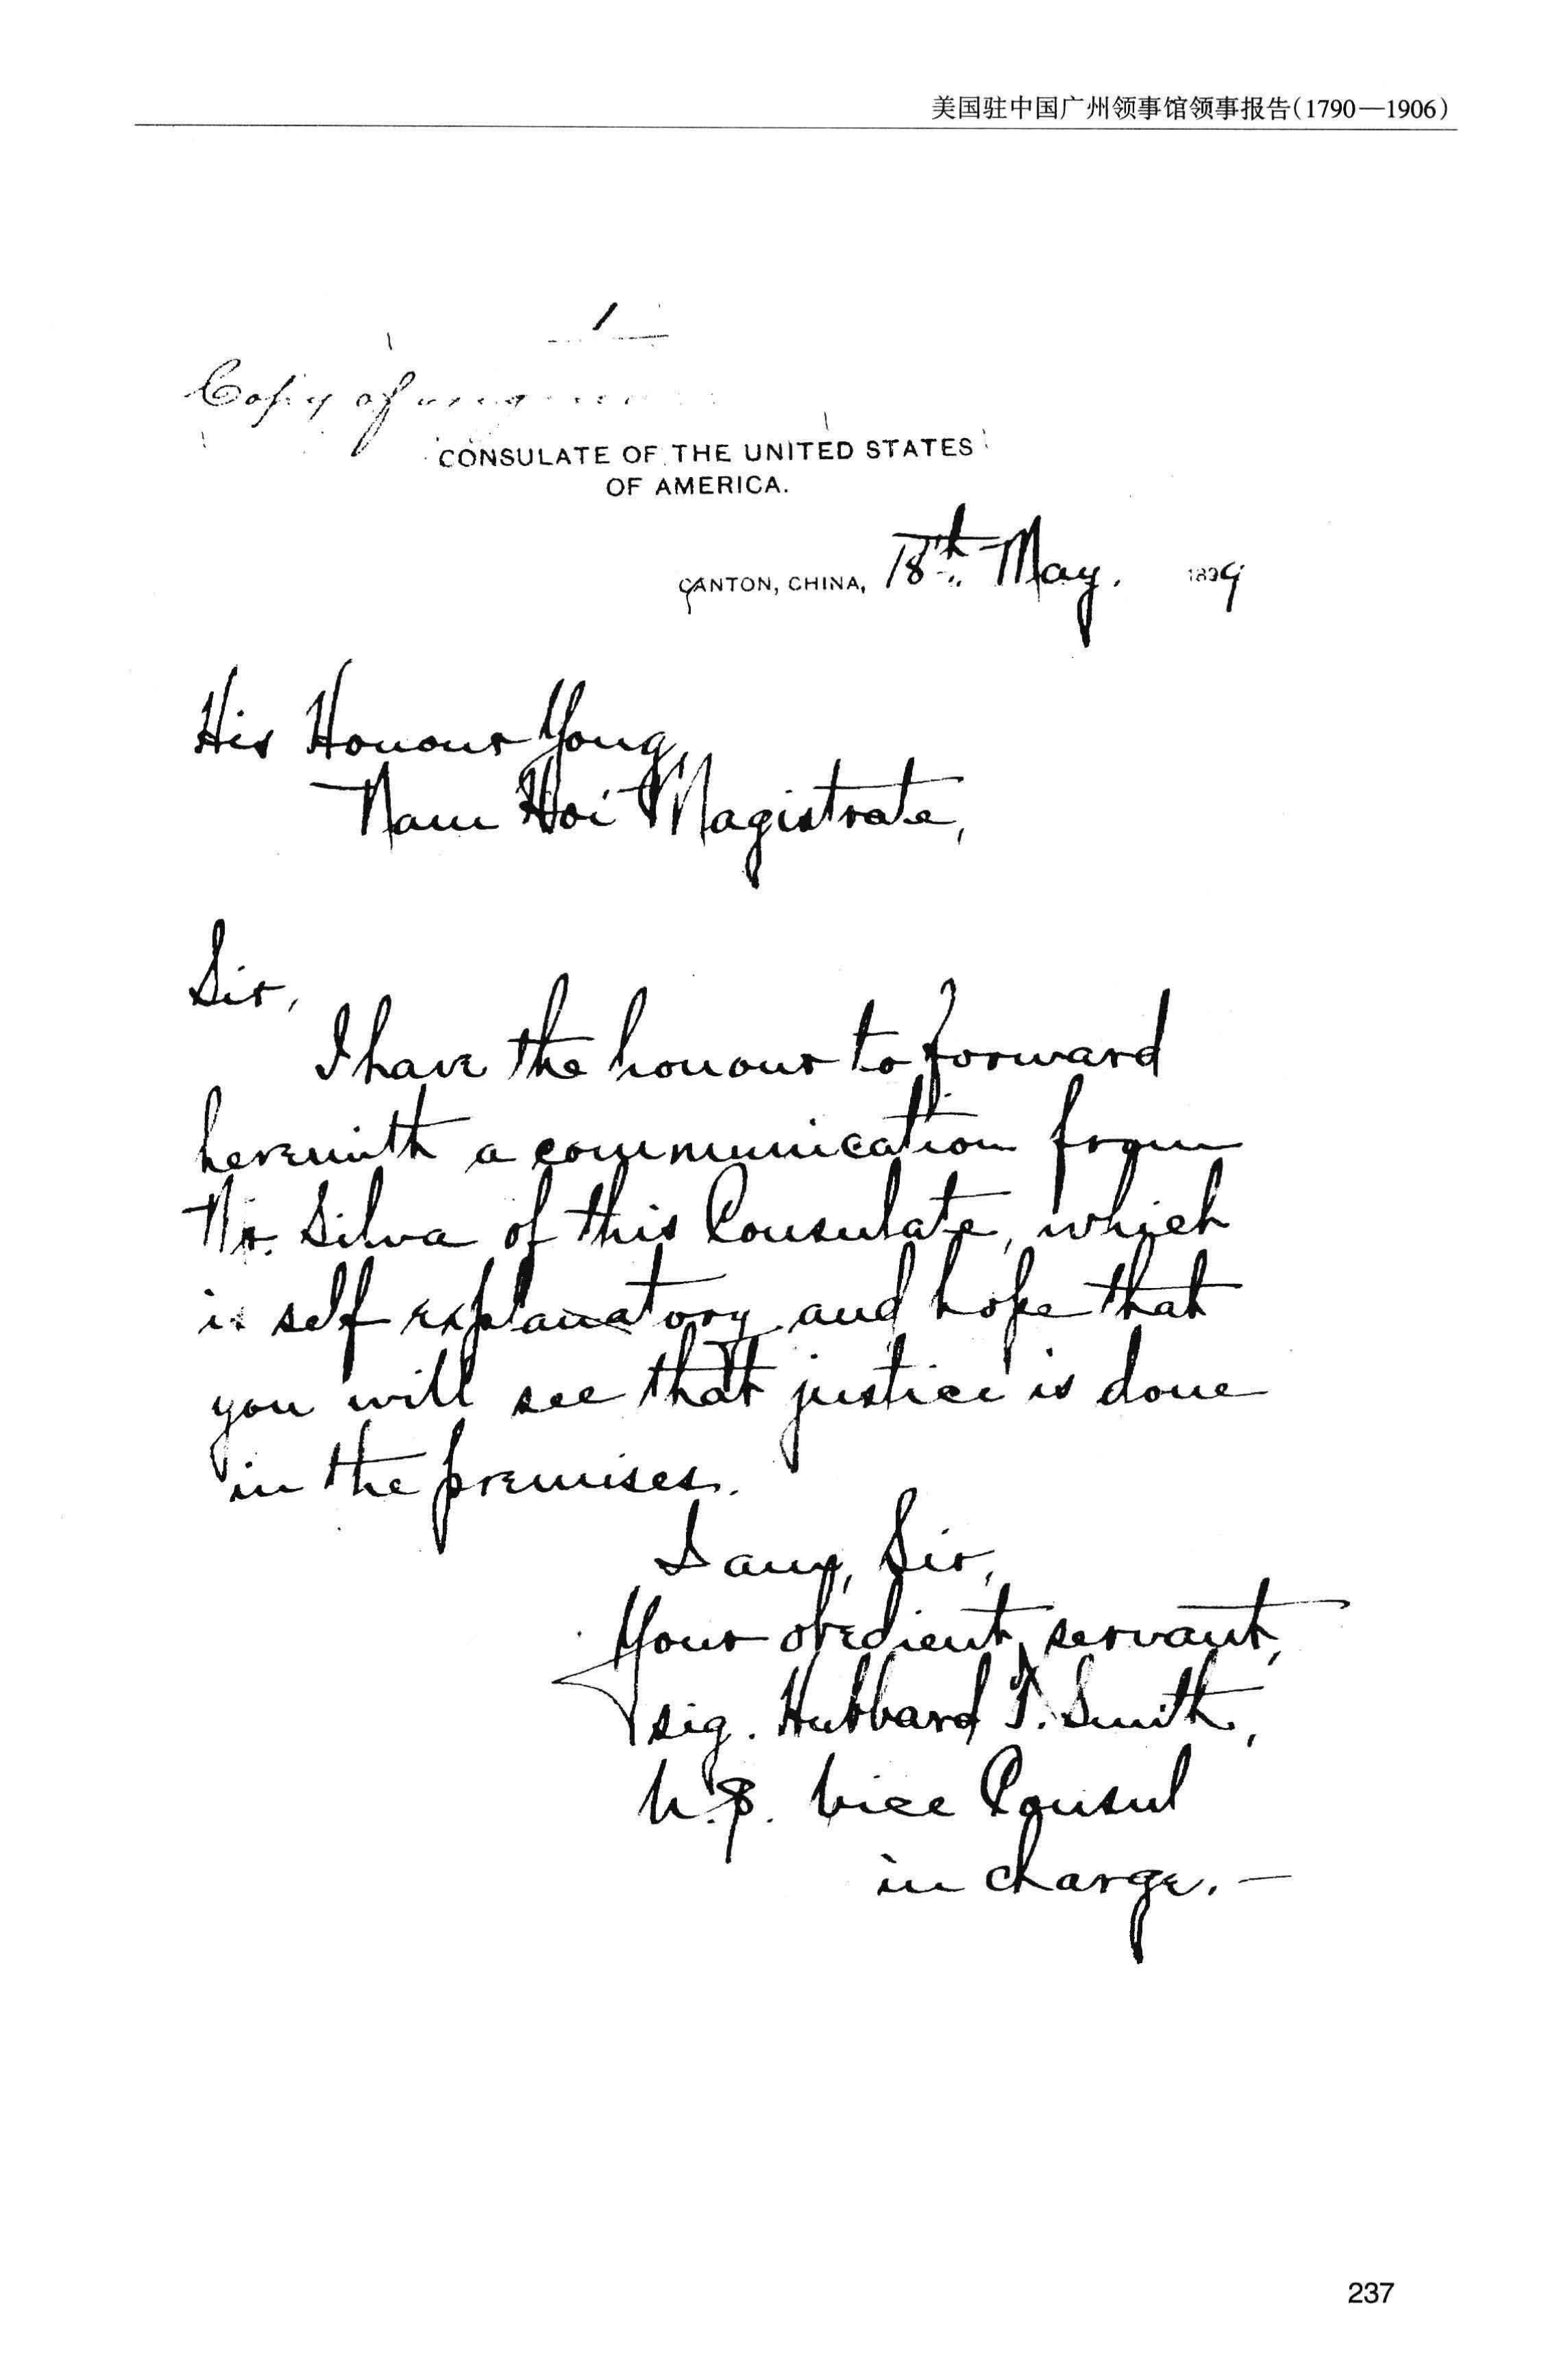 美国驻中国广州领事馆领事报告(1790—1906)
1
Copy of
CONSULATE OF THE UNITED STATES
OF AMERICA.
CANTON, CHINA, 18th May. 1899
His Honour Yong,
Nam Hoi Magistrate,
Sir,
I have the honour to forward
herewith a communication from
Mr. Silva of this Consulate, which
is self explanatory and hope that
you will see that justice is done
in the premises.
I am, Sir,
Your obedient servant,
sig. Hubbard T. Smith,
U.S. Vice Consul
in charge.—
237